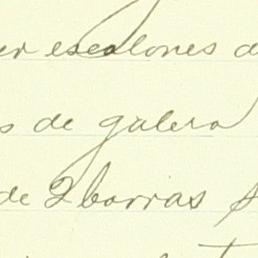 er escalones d
s de galera
de 2 barras